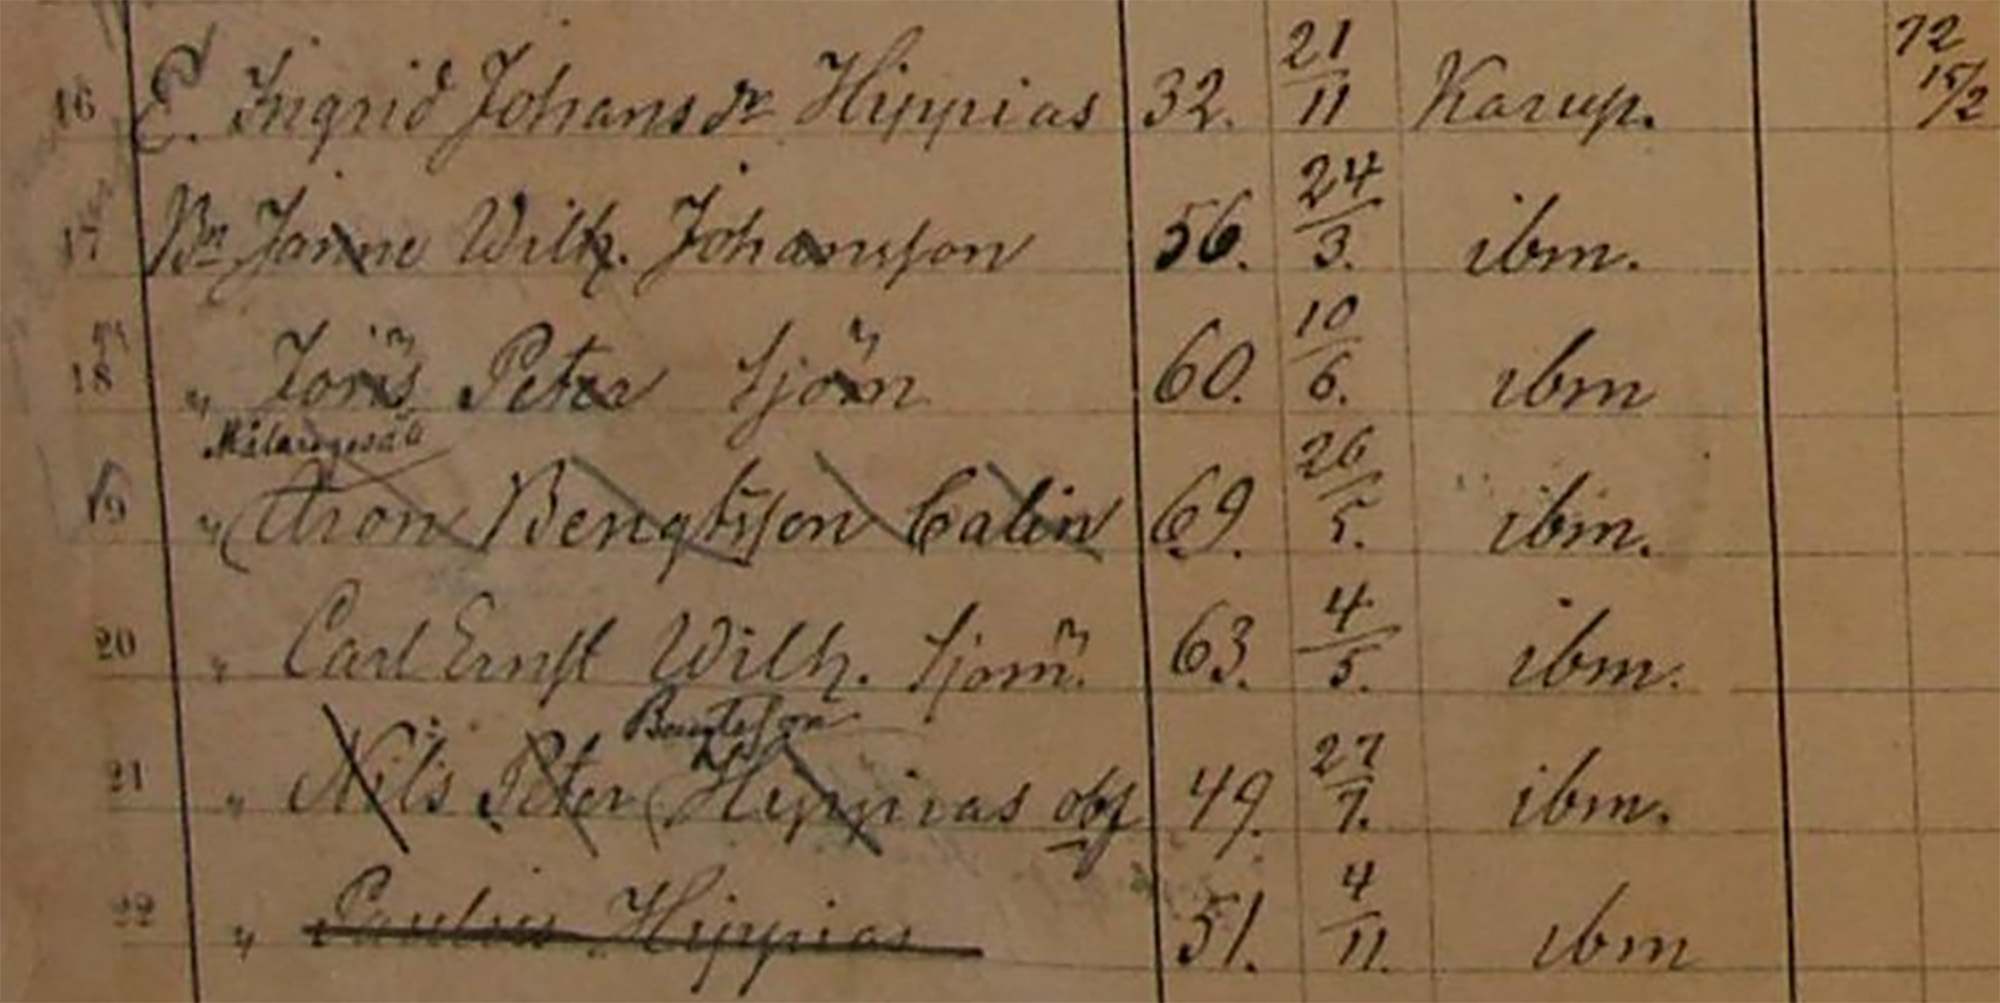 16 E. Ingrid Johansdr Hippias 32. 21/11 Karup. 72 15/2
17 Bn Janne Wilh. Johansson 56. 24/3. ibm.
18 " Jöns Peter Sjöm 60. 10/6. ibm
Målaregesäll
19 " Aron Bengtsson Calin 69. 26/5. ibm.
20 " Carl Ernst Wilh. Sjöm. 63. 4/5. ibm.
Bengtsson
21 " Nils Peter Hippias obf 49. 27/7. ibm.
22 " Paulus Hippias 51. 4/11. ibm